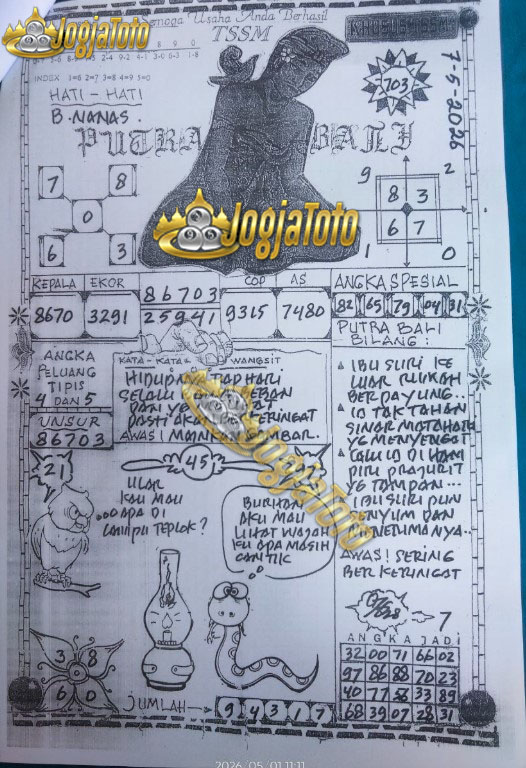 JogjaToto
Semoga Usaha Anda Berhasil
TSSM
KHUSUS TSSM
INDEX 1=6 2=7 3=8 4=9 5=0
7-5-2026
703
HATI - HATI
B. NANAS.
PUTRA BALI
7 8
0
6 3
9 2
8 3
6 7
1 0
JogjaToto
KEPALA EKOR
8670 3291
86703
25941
COP AS
9315 7480
ANGKA SPESIAL
82 65 79 04 31
PUTRA BALI
BILANG :
ANGKA
PELUANG
TIPIS
4 DAN 5
UNSUR
86703
KATA - KATA WANGSIT
SELALU
DAN YG
PASTI
AWAS! MAINKAN GAMBAR.
JogjaToto
IBU SURI KE
LUAR RUMAH
BERPAYUNG..
IA TAK TAHAN
SINAR MATAHARI
YG MENYENGAT
LALU IA DI HAM
PIRI PRAJURIT
YG TAMPAN...
IBU SURI PUN
MENERIMANYA..
AWAS! SERING
BERKERINGAT
21
45
ULAR
KAU MAU
...APA DI
LAMPU TEPLOK?
BURHAN
AKU MAU
LIHAT WAJAH
KU APA MASIH
CANTIK
7
ANGKA JADI
32 00 71 66 02
97 86 88 70 23
40 77 33 89
68 39 07 28 31
3 8
6 0
JUMLAH → 9 4 3 1 7
2026/05/01 11:11